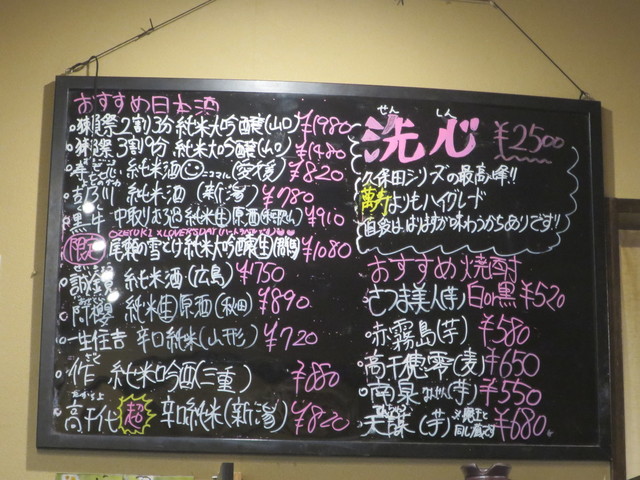 おすすめ日本酒
獺祭2割3分 純米大吟醸(山口) ¥1980
獺祭3割9分 純米大吟醸(山口) ¥1480
純米酒 (愛媛) ¥820
純米酒 (新潟) ¥780
黒牛 中取り 純米生原酒(和歌山) ¥910
限定 尾瀬の雪どけ 純米大吟醸生(群馬) ¥1080
誠鏡 純米酒(広島) ¥750
阿櫻 純米生原酒(秋田) ¥890
住吉 辛口純米(山形) ¥720
作 純米吟醸(三重) ¥850
たかちよ
高千代 超 辛口純米(新潟) ¥820
せん しん
洗心 ¥2500
久保田シリーズの最高峰!!
萬寿よりもハイグレード
値段ははりますが味わうからありです!!
おすすめ焼酎
さつま美人(芋) 白or黒 ¥520
赤霧島(芋) ¥580
高千穂零(麦) ¥650
南泉(芋) ¥550
天誅(芋) ¥680